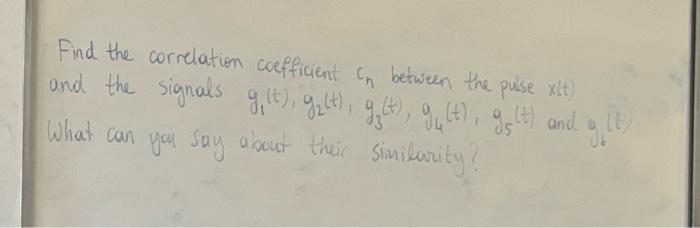 Find the correlation coefficient Cn between the pulse x(t)
and the signals g₁(t), g₂(t), g₃(t), g₄(t), g₅(t) and g₆(t)
What can you say about their similarity?